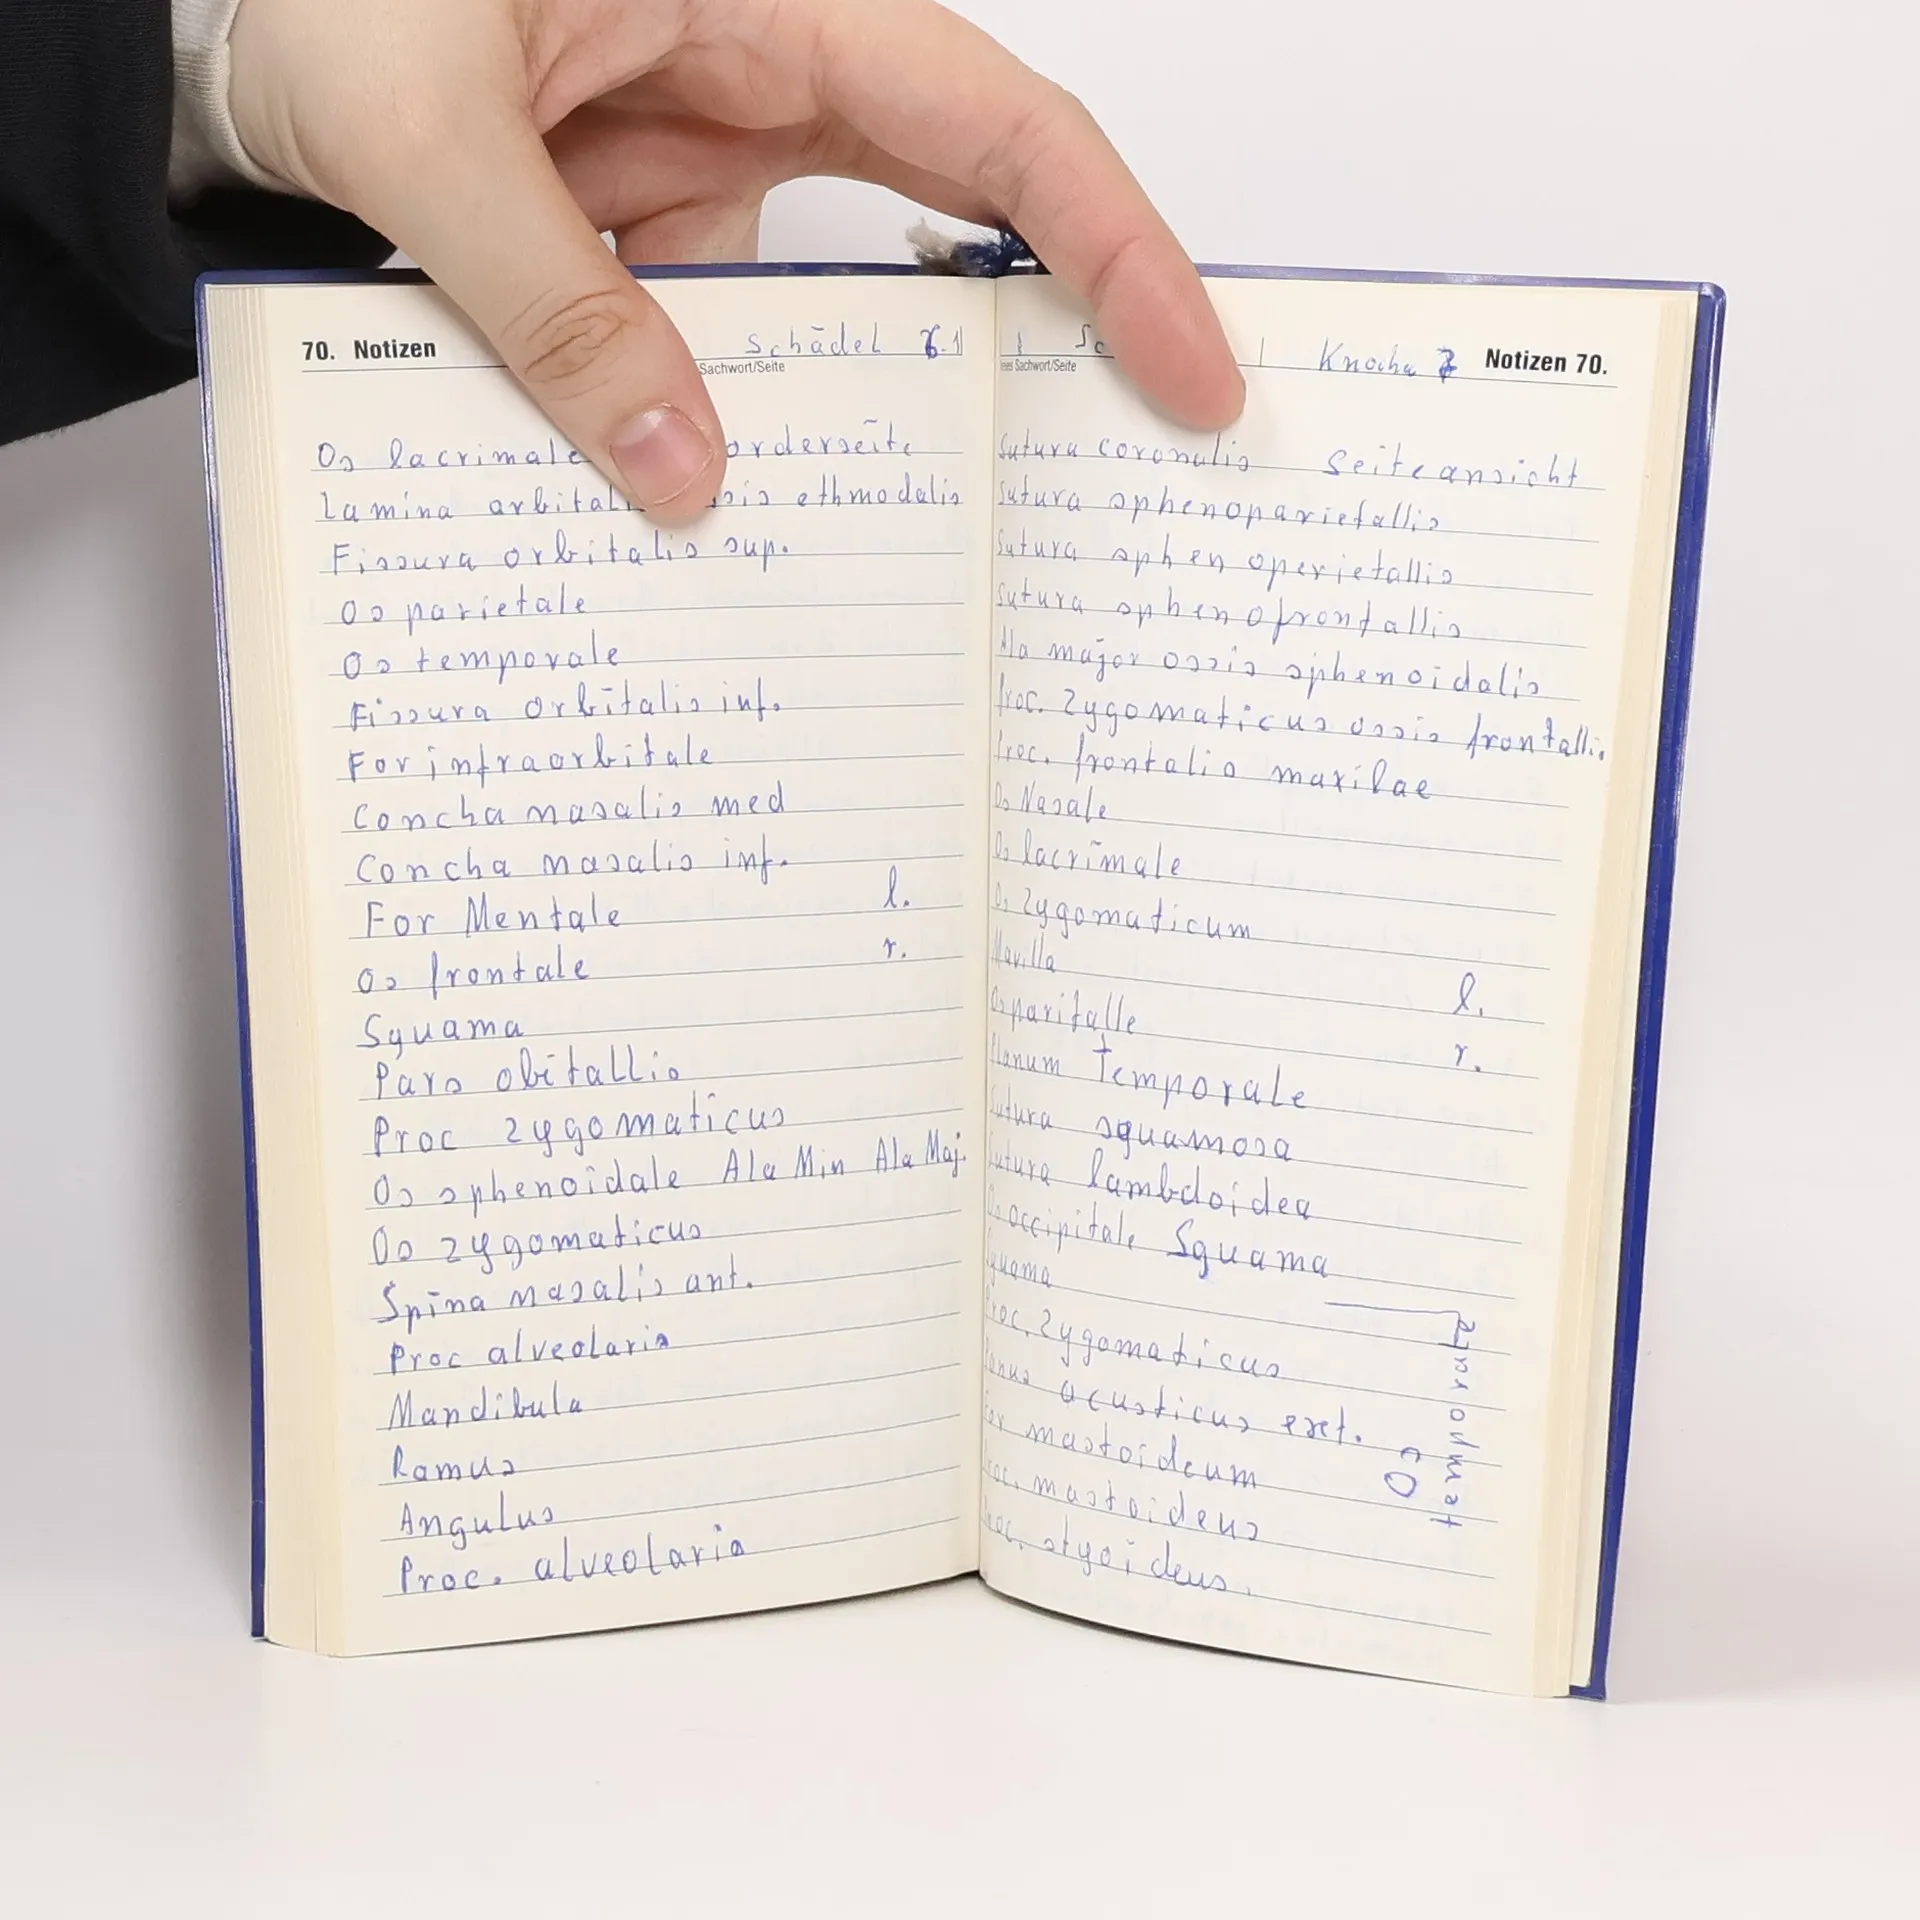 70. Notizen
Schädel 6.1
Sachwort/Seite
Os lacrimale orderseite
Lamina orbital ssis ethmodalis
Fissura orbitalis sup.
Os parietale
Os temporale
Fissura orbitalis inf.
For infraorbitale
Concha nasalis med
Concha nasalis inf.
For Mentale l.
Os frontale r.
Squama
Pars obitallis
Proc zygomaticus
Os sphenoidale Ala Min Ala Maj.
Os zygomaticus
Spina nasalis ant.
Proc alveolaris
Mandibula
Ramus
Angulus
Proc. alveolaris
Sc Knoche 7 Notizen 70.
Sachwort/Seite
Sutura coronalis Seiteansicht
Sutura sphenoparietallis
Sutura sphenoperietallis
Sutura sphenofrontallis
Ala major ossis sphenoidalis
Proc. zygomaticus ossis frontallis
Proc. frontalis maxilae
Os Nasale
Os lacrimale
Os zygomaticum
Maxilla
Os paritalle l.
Planum Temporale r.
Sutura squamosa
Sutura lambdoidea
Os occipitale Squama
Squama
Proc. zygomaticus
acusticus ext.
For mastoideum
Proc. mastoideus
Proc. styoideus.
Os